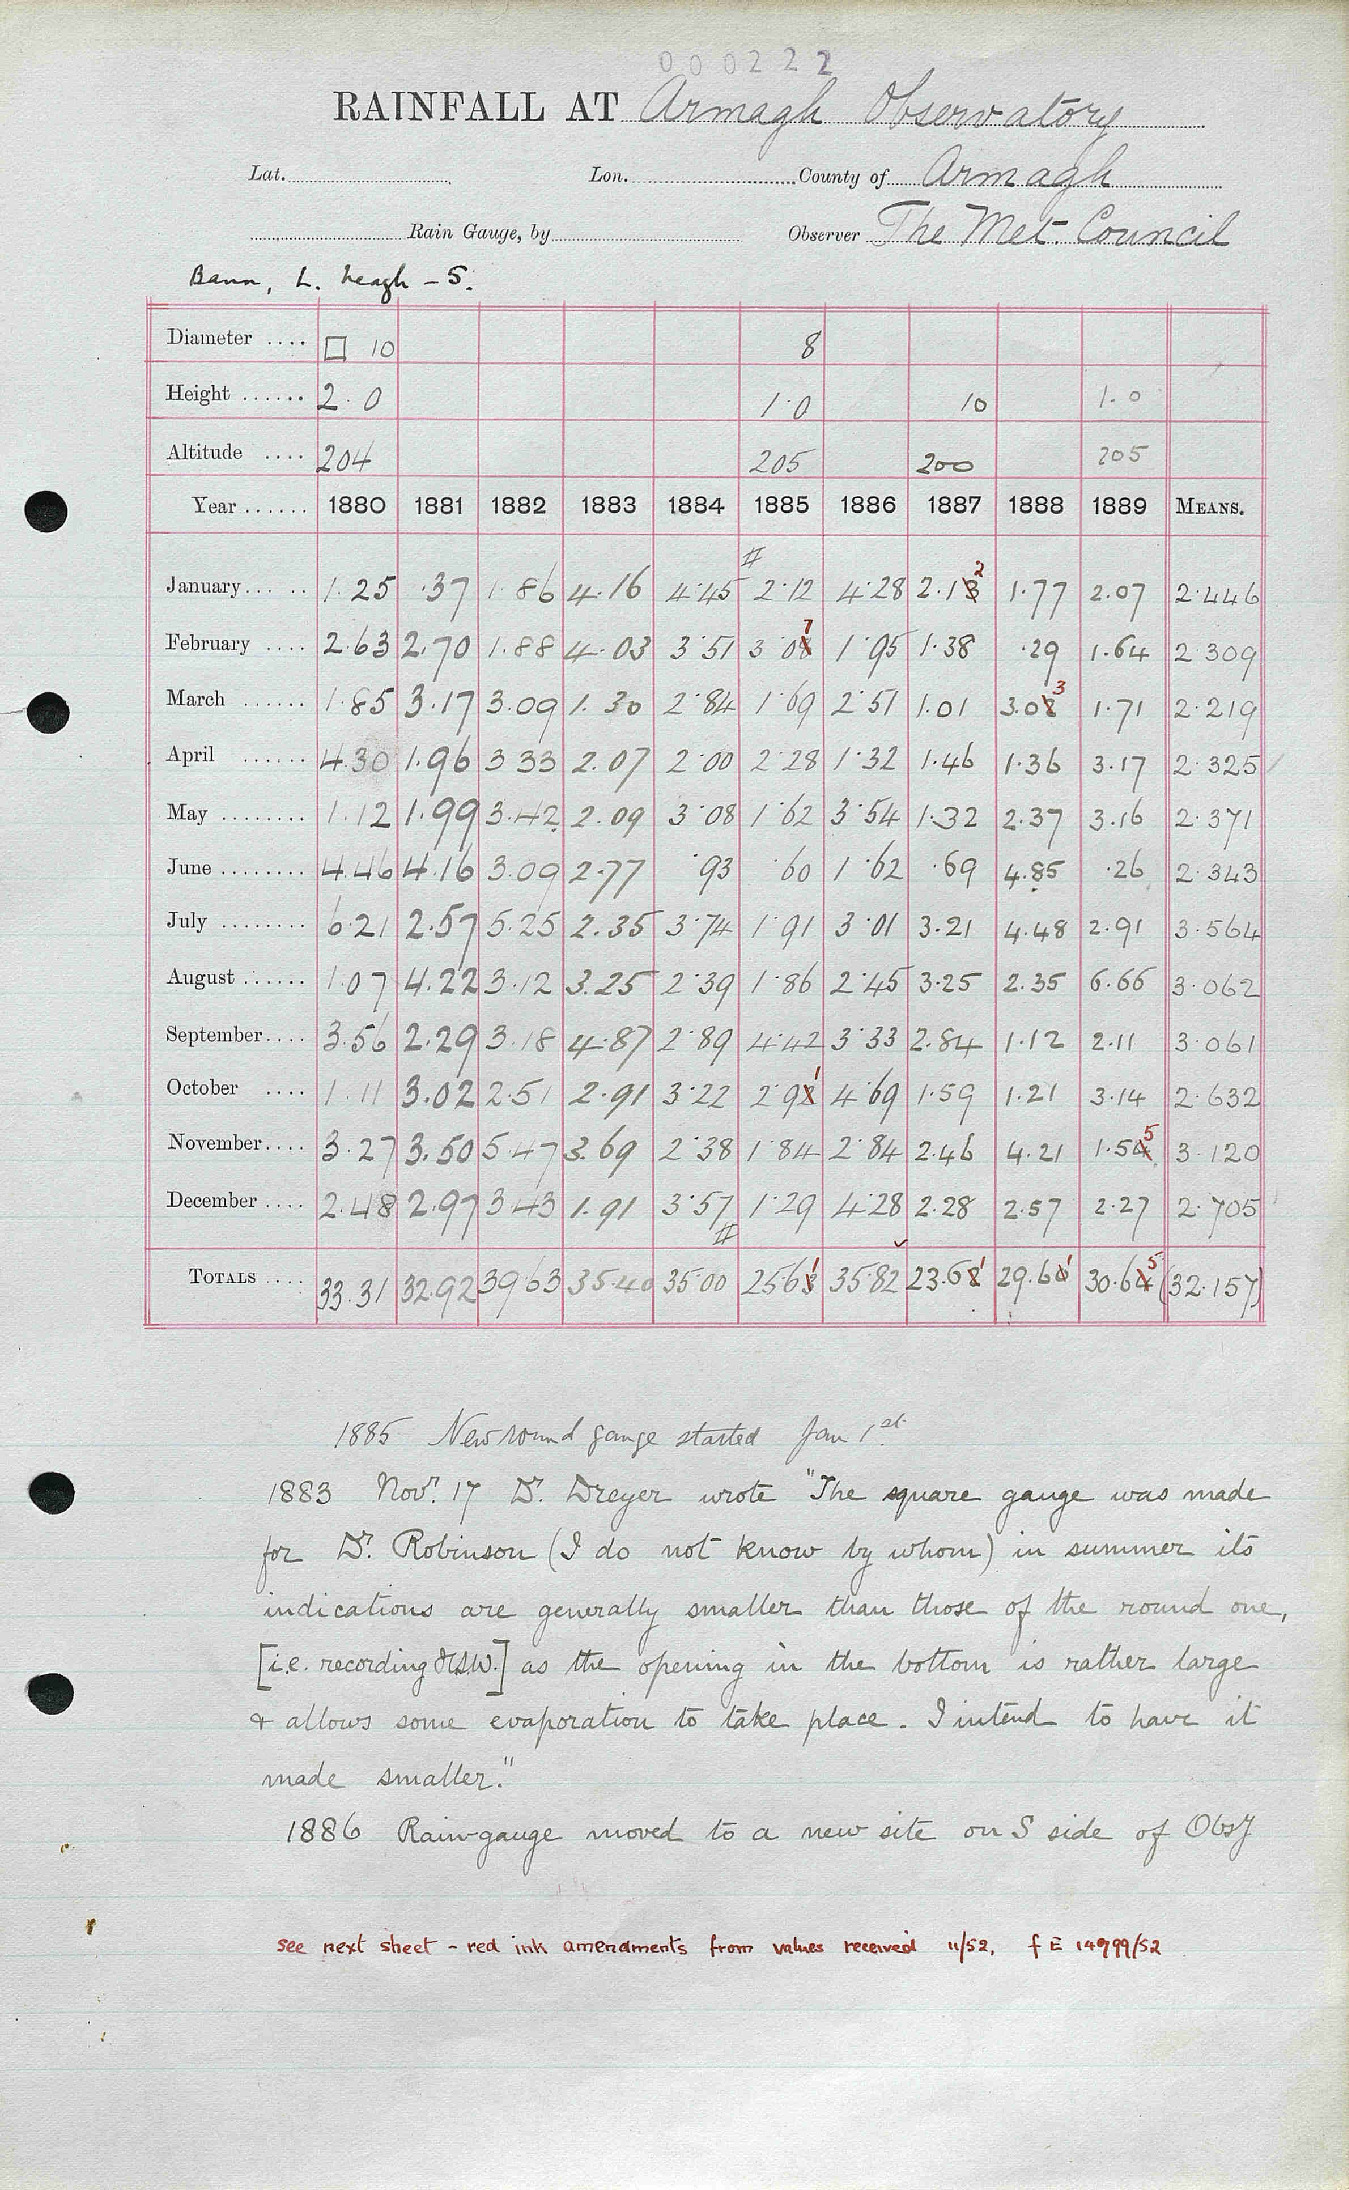 000222
RAINFALL AT Armagh Observatory
Lat. Lon. County of Armagh
Rain Gauge, by Observer The Met. Council
Bann, L. Neagh - S.
Diameter .... □ 10 8
Height ...... 2.0 1.0 10 1.0
Altitude .... 204 205 200 205
Year ...... 1880 1881 1882 1883 1884 1885 1886 1887 1888 1889 MEANS.
#
January..... 1.25 .37 1.86 4.16 4.45 2.12 4.28 2.13 2 1.77 2.07 2.446
February .... 2.63 2.70 1.88 4.03 3.51 3.08 7 1.95 1.38 .29 1.64 2.309
March ...... 1.85 3.17 3.09 1.30 2.84 1.69 2.51 1.01 3.08 3 1.71 2.219
April ...... 4.30 1.96 3.33 2.07 2.00 2.28 1.32 1.46 1.36 3.17 2.325
May ........ 1.12 1.99 3.42 2.09 3.08 1.62 3.54 1.32 2.37 3.16 2.371
June ........ 4.46 4.16 3.09 2.77 .93 .60 1.62 .69 4.85 .26 2.343
July ........ 6.21 2.57 5.25 2.35 3.74 1.91 3.01 3.21 4.48 2.91 3.564
August ...... 1.07 4.22 3.12 3.25 2.39 1.86 2.45 3.25 2.35 6.66 3.062
September.... 3.56 2.29 3.18 4.87 2.89 4.42 3.33 2.84 1.12 2.11 3.061
October .... 1.11 3.02 2.51 2.91 3.22 2.92 1 4.69 1.59 1.21 3.14 2.632
November.... 3.27 3.50 5.47 3.69 2.38 1.84 2.84 2.46 4.21 1.54 5 3.120
December .... 2.48 2.97 3.43 1.91 3.57 1.29 4.28 2.28 2.57 2.27 2.705
#
TOTALS .... 33.31 32.92 39.63 35.40 35.00 25.63 1 35.82 23.62 1 29.66 1 30.64 5 (32.157)
1885 New round gauge started Jan 1st.
1883 Novr. 17 Dr. Dreyer wrote "The square gauge was made
for Dr. Robinson (I do not know by whom) in summer its
indications are generally smaller than those of the round one,
[i.e. recording] as the opening in the bottom is rather large
& allows some evaporation to take place. I intend to have it
made smaller."
1886 Rain-gauge moved to a new site on S side of Obsy
see next sheet - red ink amendments from values received 11/52. f E 14999/52